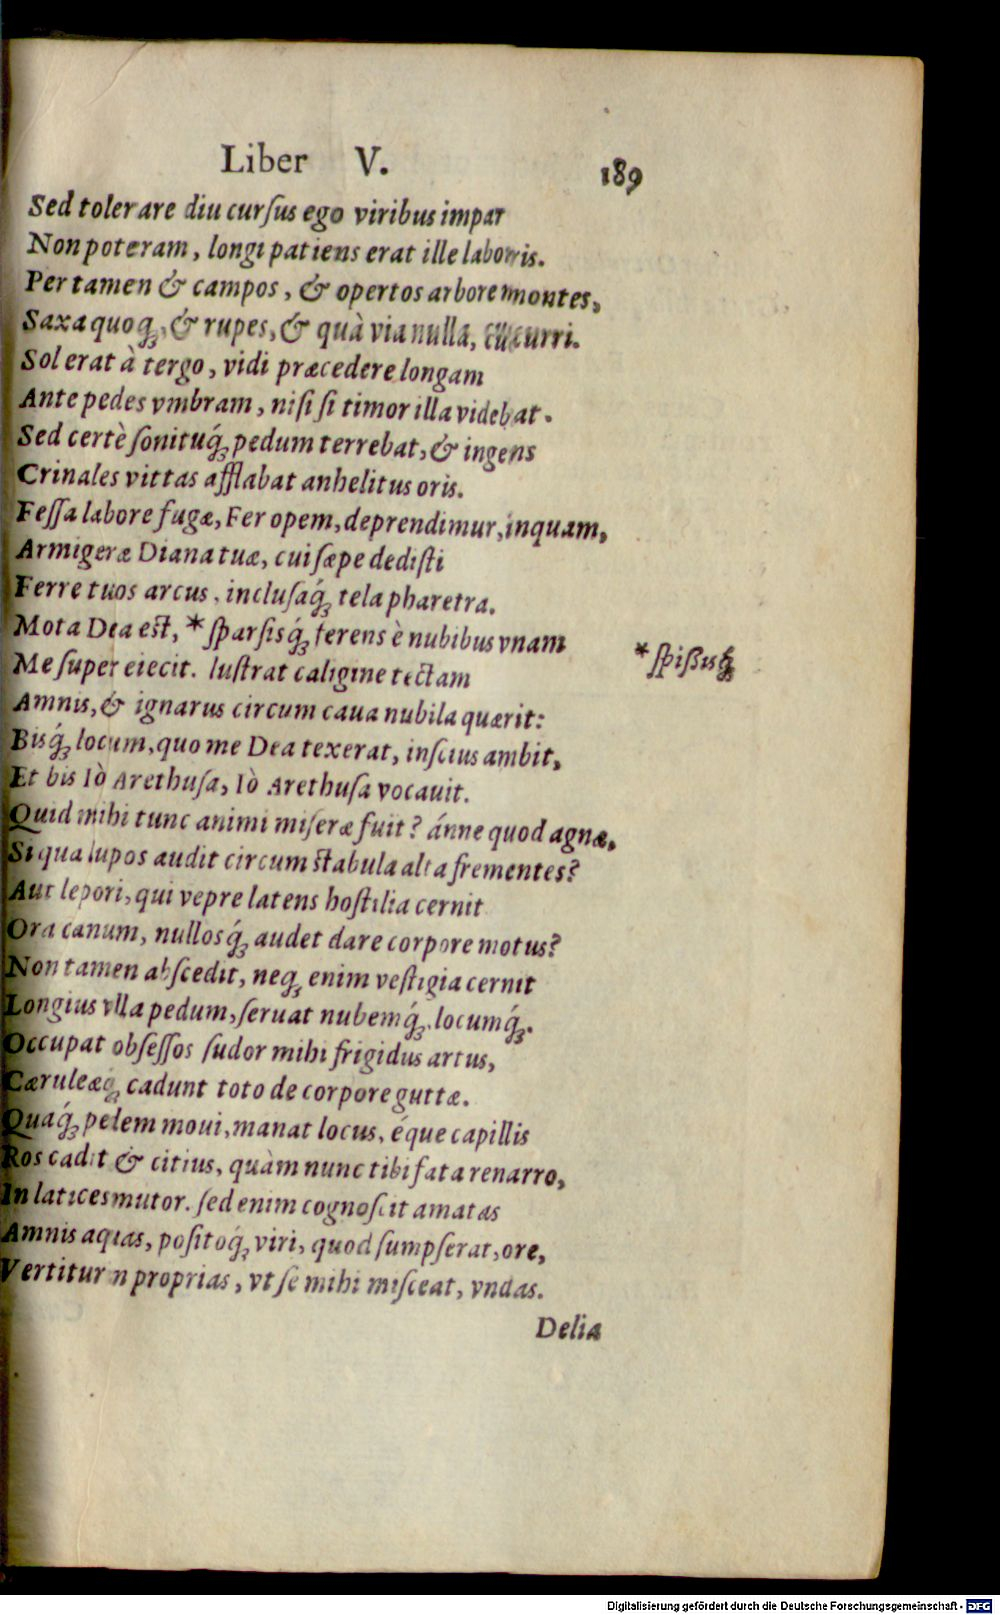 Liber V. 189
Sed tolerare diu curſus ego viribus impar
Non poteram, longi patiens erat ille laboris.
Per tamen & campos, & opertos arbore montes,
Saxa quoq́ꝫ, & rupes, & quà via nulla, cucurri.
Sol erat à tergo, vidi præcedere longam
Ante pedes vmbram, niſi ſi timor illa videbat.
Sed certè ſonituq́ꝫ pedum terrebat, & ingens
Crinales vittas afflabat anhelitus oris.
Feſſa labore fugæ, Fer opem, deprendimur, inquam,
Armigeræ Diana tuæ, cui ſæpe dediſti
Ferre tuos arcus, incluſaq́ꝫ tela pharetra.
Mota Dea eſt, *ſparſisq́ꝫ ferens è nubibus vnam
*ſpißisq́ꝫ
Me ſuper eiecit. luſtrat caligine tectam
Amnis, & ignarus circum caua nubila quærit:
Bisq́ꝫ locum, quo me Dea texerat, inſcius ambit,
Et bis Iò Arethuſa, Iò Arethuſa vocauit.
Quid mihi tunc animi miſeræ fuit? ánne quod agnæ,
Si qua lupos audit circum ſtabula alta frementes?
Aut lepori, qui vepre latens hoſtilia cernit
Ora canum, nullosq́ꝫ audet dare corpore motus?
Non tamen abſcedit, neqꝫ enim veſtigia cernit
Longius vlla pedum, ſeruat nubemq́ꝫ, locumq́ꝫ.
Occupat obſeſſos ſudor mihi frigidus artus,
Cæruleæqꝫ cadunt toto de corpore guttæ.
Quaq́ꝫ pedem moui, manat locus, éque capillis
Ros cadit & citius, quàm nunc tibi fata renarro,
In latices mutor. ſed enim cognoſcit amatas
Amnis aquas, poſitoq́ꝫ viri, quod ſumpſerat, ore,
Vertitur n proprias, vt ſe mihi miſceat, vndas.
Delia
Digitalisierung gefördert durch die Deutsche Forschungsgemeinschaft - DFG